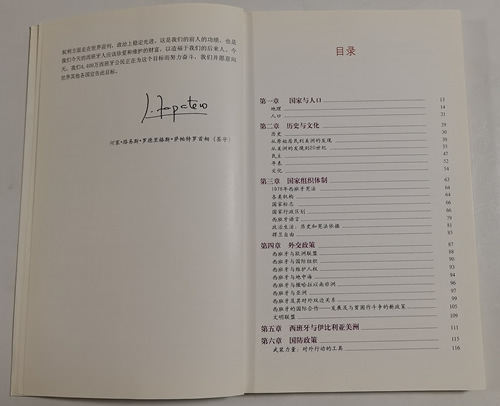 权利方面走在世界前列,政治上稳定先进,这是我们的前人的功绩,也是
我们今天的西班牙人应该珍爱和维护的财富,以造福于我们的后来人。今
天,我们4,400万西班牙公民正在为这个目标而努力奋斗,我们并愿意向
世界其他各国宣告此目标。
何塞·路易斯·罗德里格斯·萨帕特罗首相(签字)
目录
第一章 国家与人口 13
地理 14
人口 21
第二章 历史与文化 29
历史 30
从原始居民到美洲的发现 30
从美洲的发现到20世纪 35
民主 41
年表 52
文化 54
第三章 国家组织体制 63
1978年西班牙宪法 64
各类机构 64
国家标志 68
国家行政区划
西班牙语言
政治生活:历史和宪法依据 81
群卫自由
第四章 外交政策 87
西班牙与欧洲联盟 88
西班牙与国际组织 90
西班牙与维护人权 93
西班牙与地中海 94
西班牙与撒哈拉以南非洲 96
西班牙与亚洲 97
西班牙及其对外双边关系 99
西班牙的国际合作——发展及与贫困作斗争的新政策 105
文明联盟 109
第五章 西班牙与伊比利亚美洲 111
第六章 国防政策 115
武装力量:对外行动的工具 116